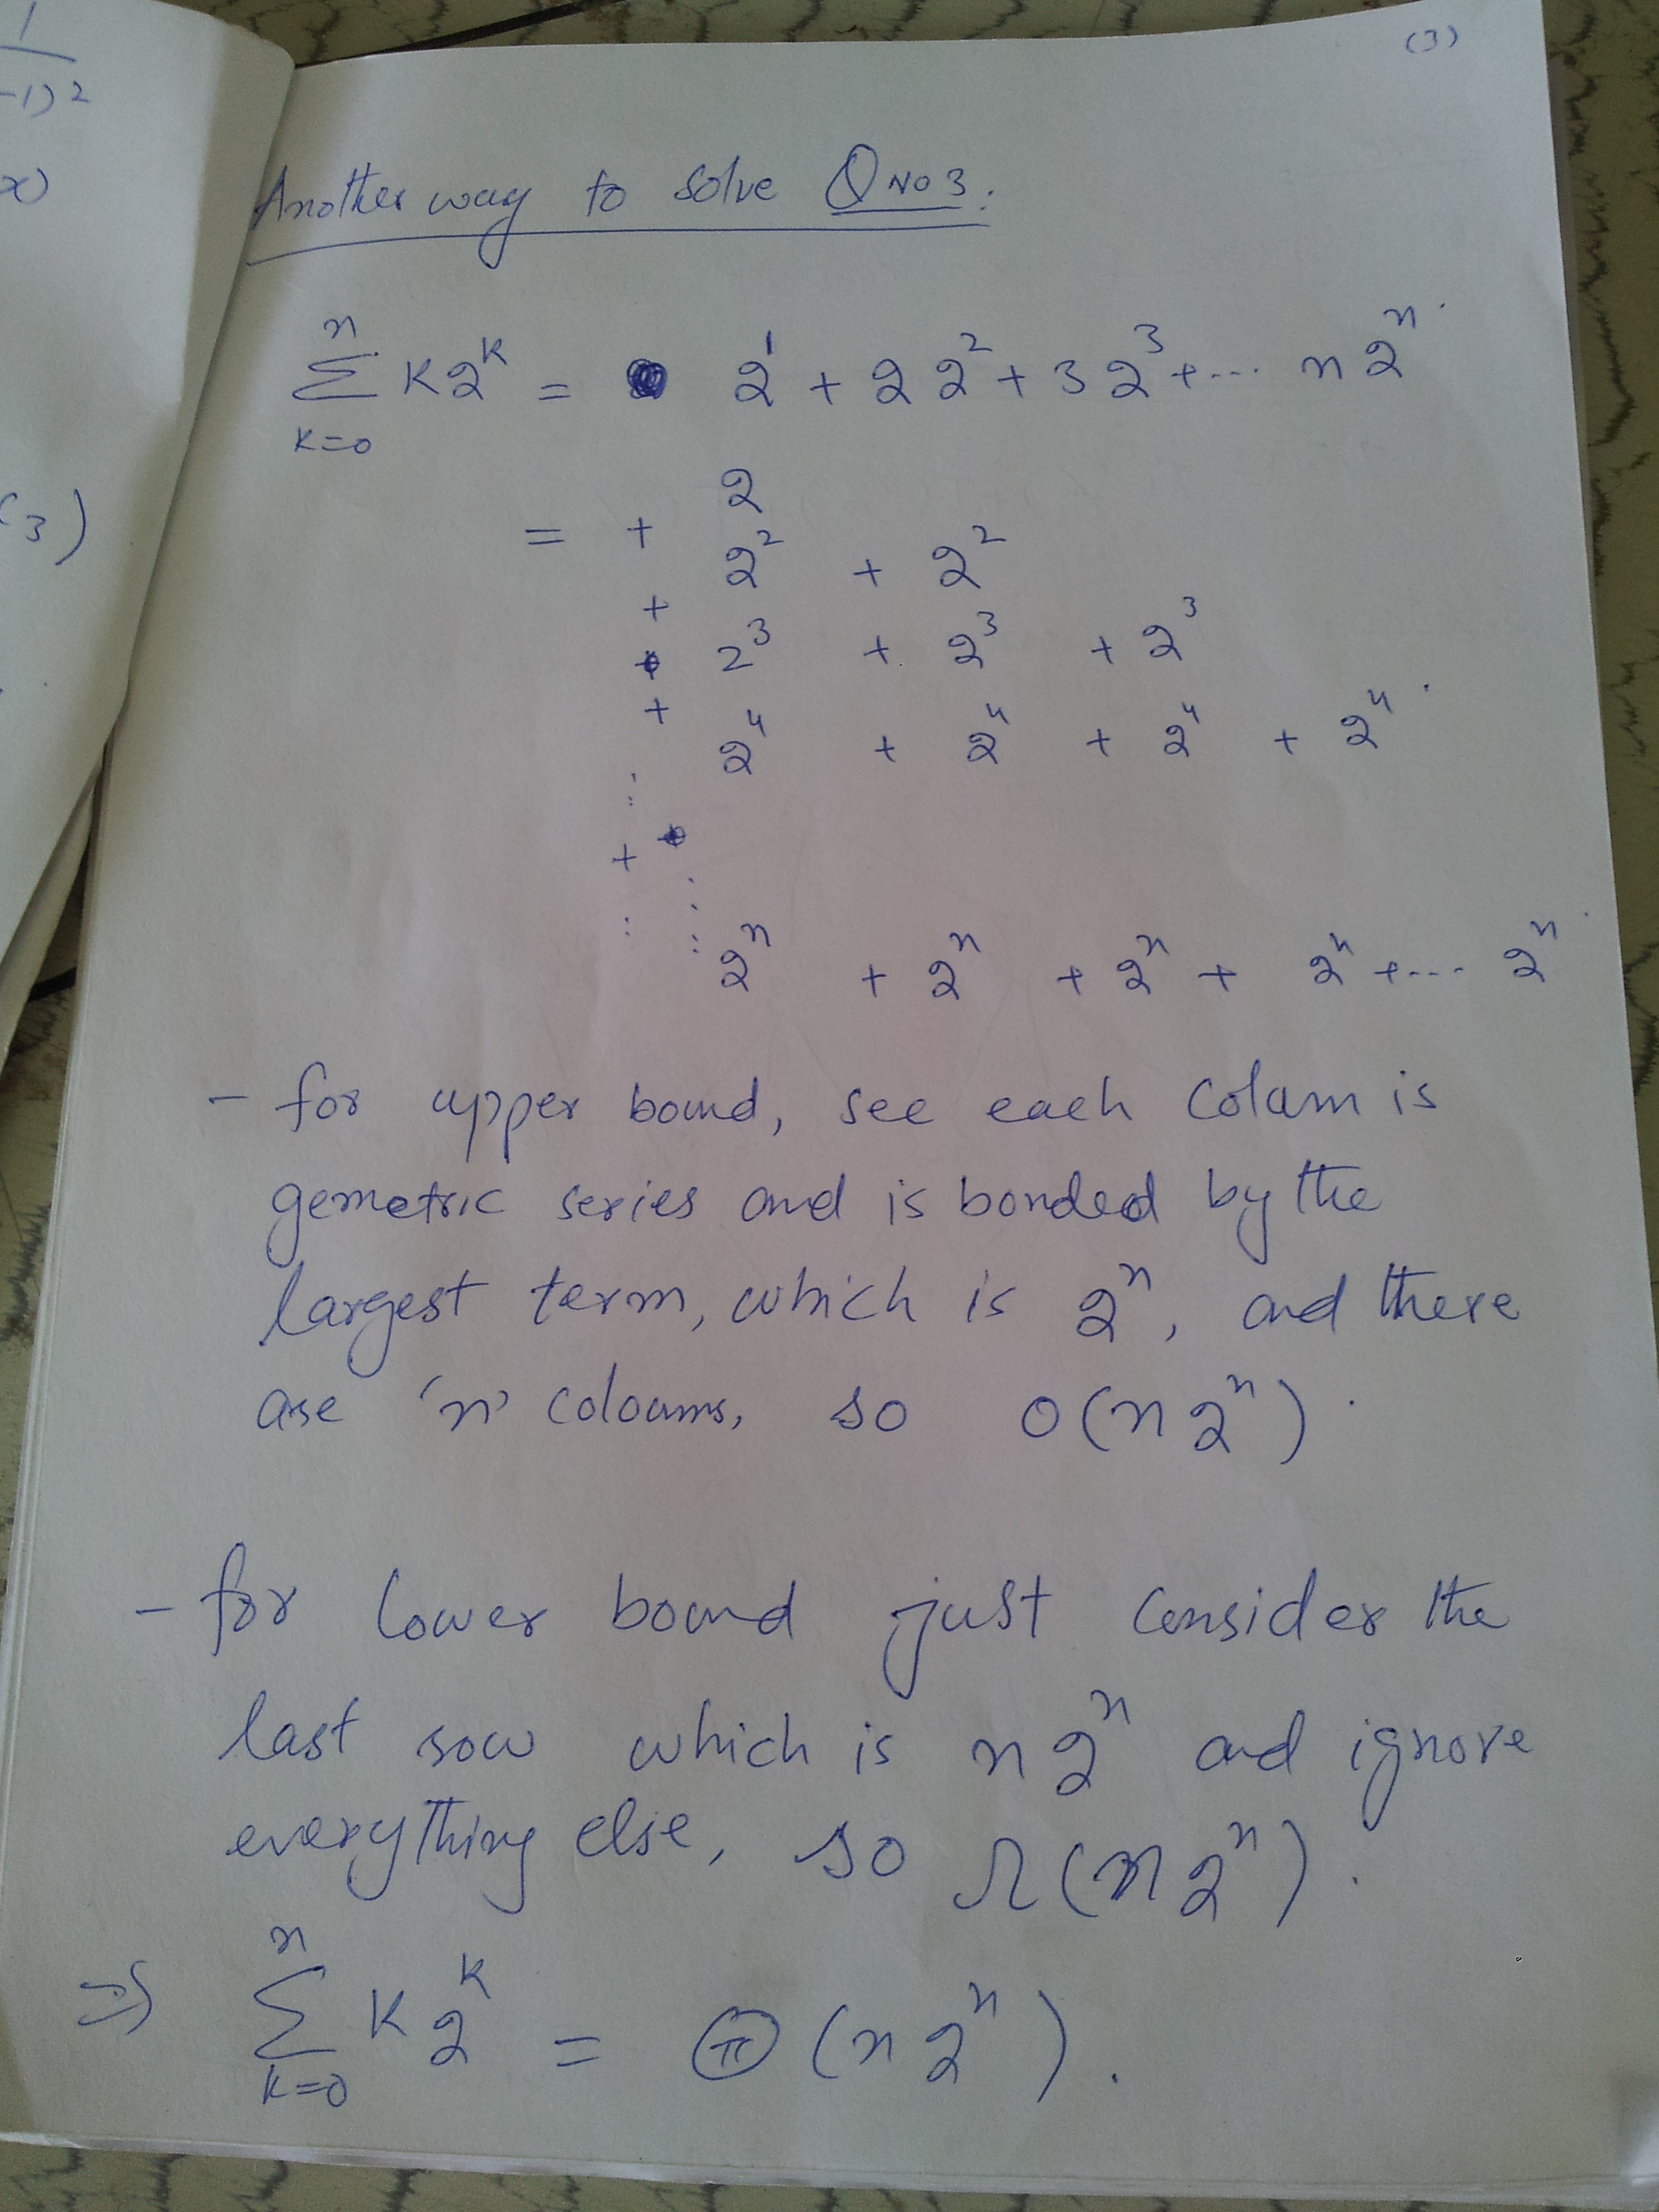 (3)
Another way to solve Q NO 3:
n
∑ K2^k = 2^1 + 2 2^2 + 3 2^3 + ... n 2^n.
K=0
2
= + 2^2 + 2^2
+ 2^3 + 2^3 + 2^3
+ 2^4 + 2^4 + 2^4 + 2^4.
+
2^n + 2^n + 2^n + 2^n + ... 2^n.
- for upper bound, see each Colam is
gemetric series and is bonded by the
largest term, which is 2^n, and there
are 'n' coloums, so O(n 2^n).
- for lower bound just Consider the
last row which is n 2^n and ignore
everything else, so Ω(n 2^n).
n
⇒ ∑ K 2^k = Θ(n 2^n).
K=0
-1)^2
x)
(3)